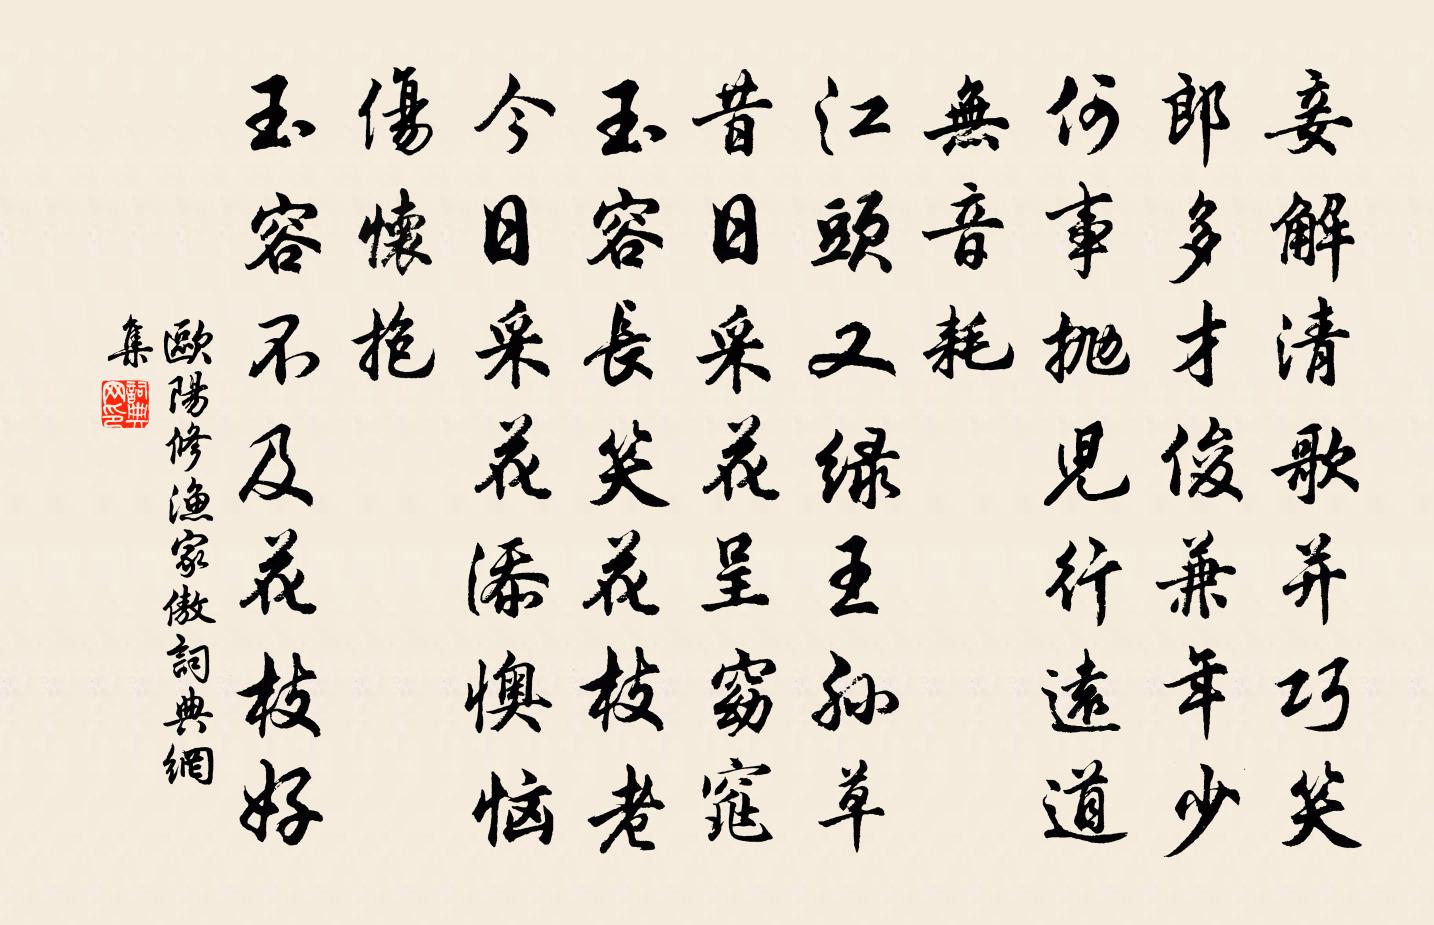 妾解清歌并巧笑
郎多才俊兼年少
何事抛児行遠道
無音耗
江頭又绿王孙草
昔日采花呈窈窕
玉容長笑花枝老
今日采花添懊恼
傷懷抱
玉容不及花枝好
歐陽修漁家傲詞典網
集
詞典网印